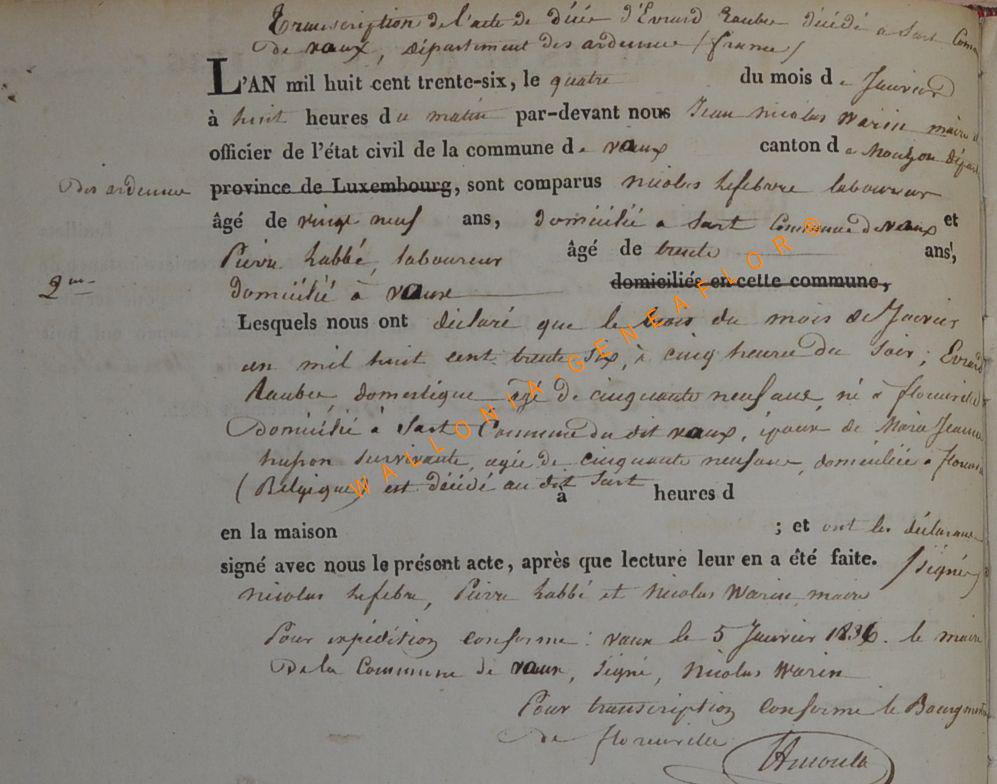 Transcription de l'acte de décès d'Evrard Rauber décédé a Sart Com
de vaux, département des ardennes (france)
L'AN mil huit cent trente-six, le quatre du mois de Janvier
à huit heures du matin par-devant nous Jean nicolas Warin maire d
officier de l'état civil de la commune de vaux canton de Mouzon dépar
des ardennes province de Luxembourg, sont comparus nicolas Lefebvre laboureur
âgé de vingt neuf ans, domicilié a Sart Commune de vaux et
Pierre Labbé, laboureur âgé de trente ans,
2me domicilié à vaux domiciliés en cette commune,
Lesquels nous ont déclaré que le trois du mois de Janvier
an mil huit cent trente six, à cinq heures du Soir; Evrard
Rauber, domestique, agé de cinquante neuf ans, né a florenville
Domicilié à Sart Commune du dit vaux, époux de Marie Jeanne
husson Survivante, agée de cinquante neuf ans, domiciliée a florenvi
(Belgique) est décédé au dit Sart à heures d
en la maison ; et ont les déclarans
signé avec nous le présent acte, après que lecture leur en a été faite. (signé)
nicolas Lefebre, Pierre Labbé et Nicolas Warin, maire
Pour expédition conforme: vaux le 5 Janvier 1836. le maire
De la Commune de vaux, Signé, Nicolas Warin
Pour transcription conforme le Bourgmestre
de florenville
WALLONIA-GENEAFLOR®